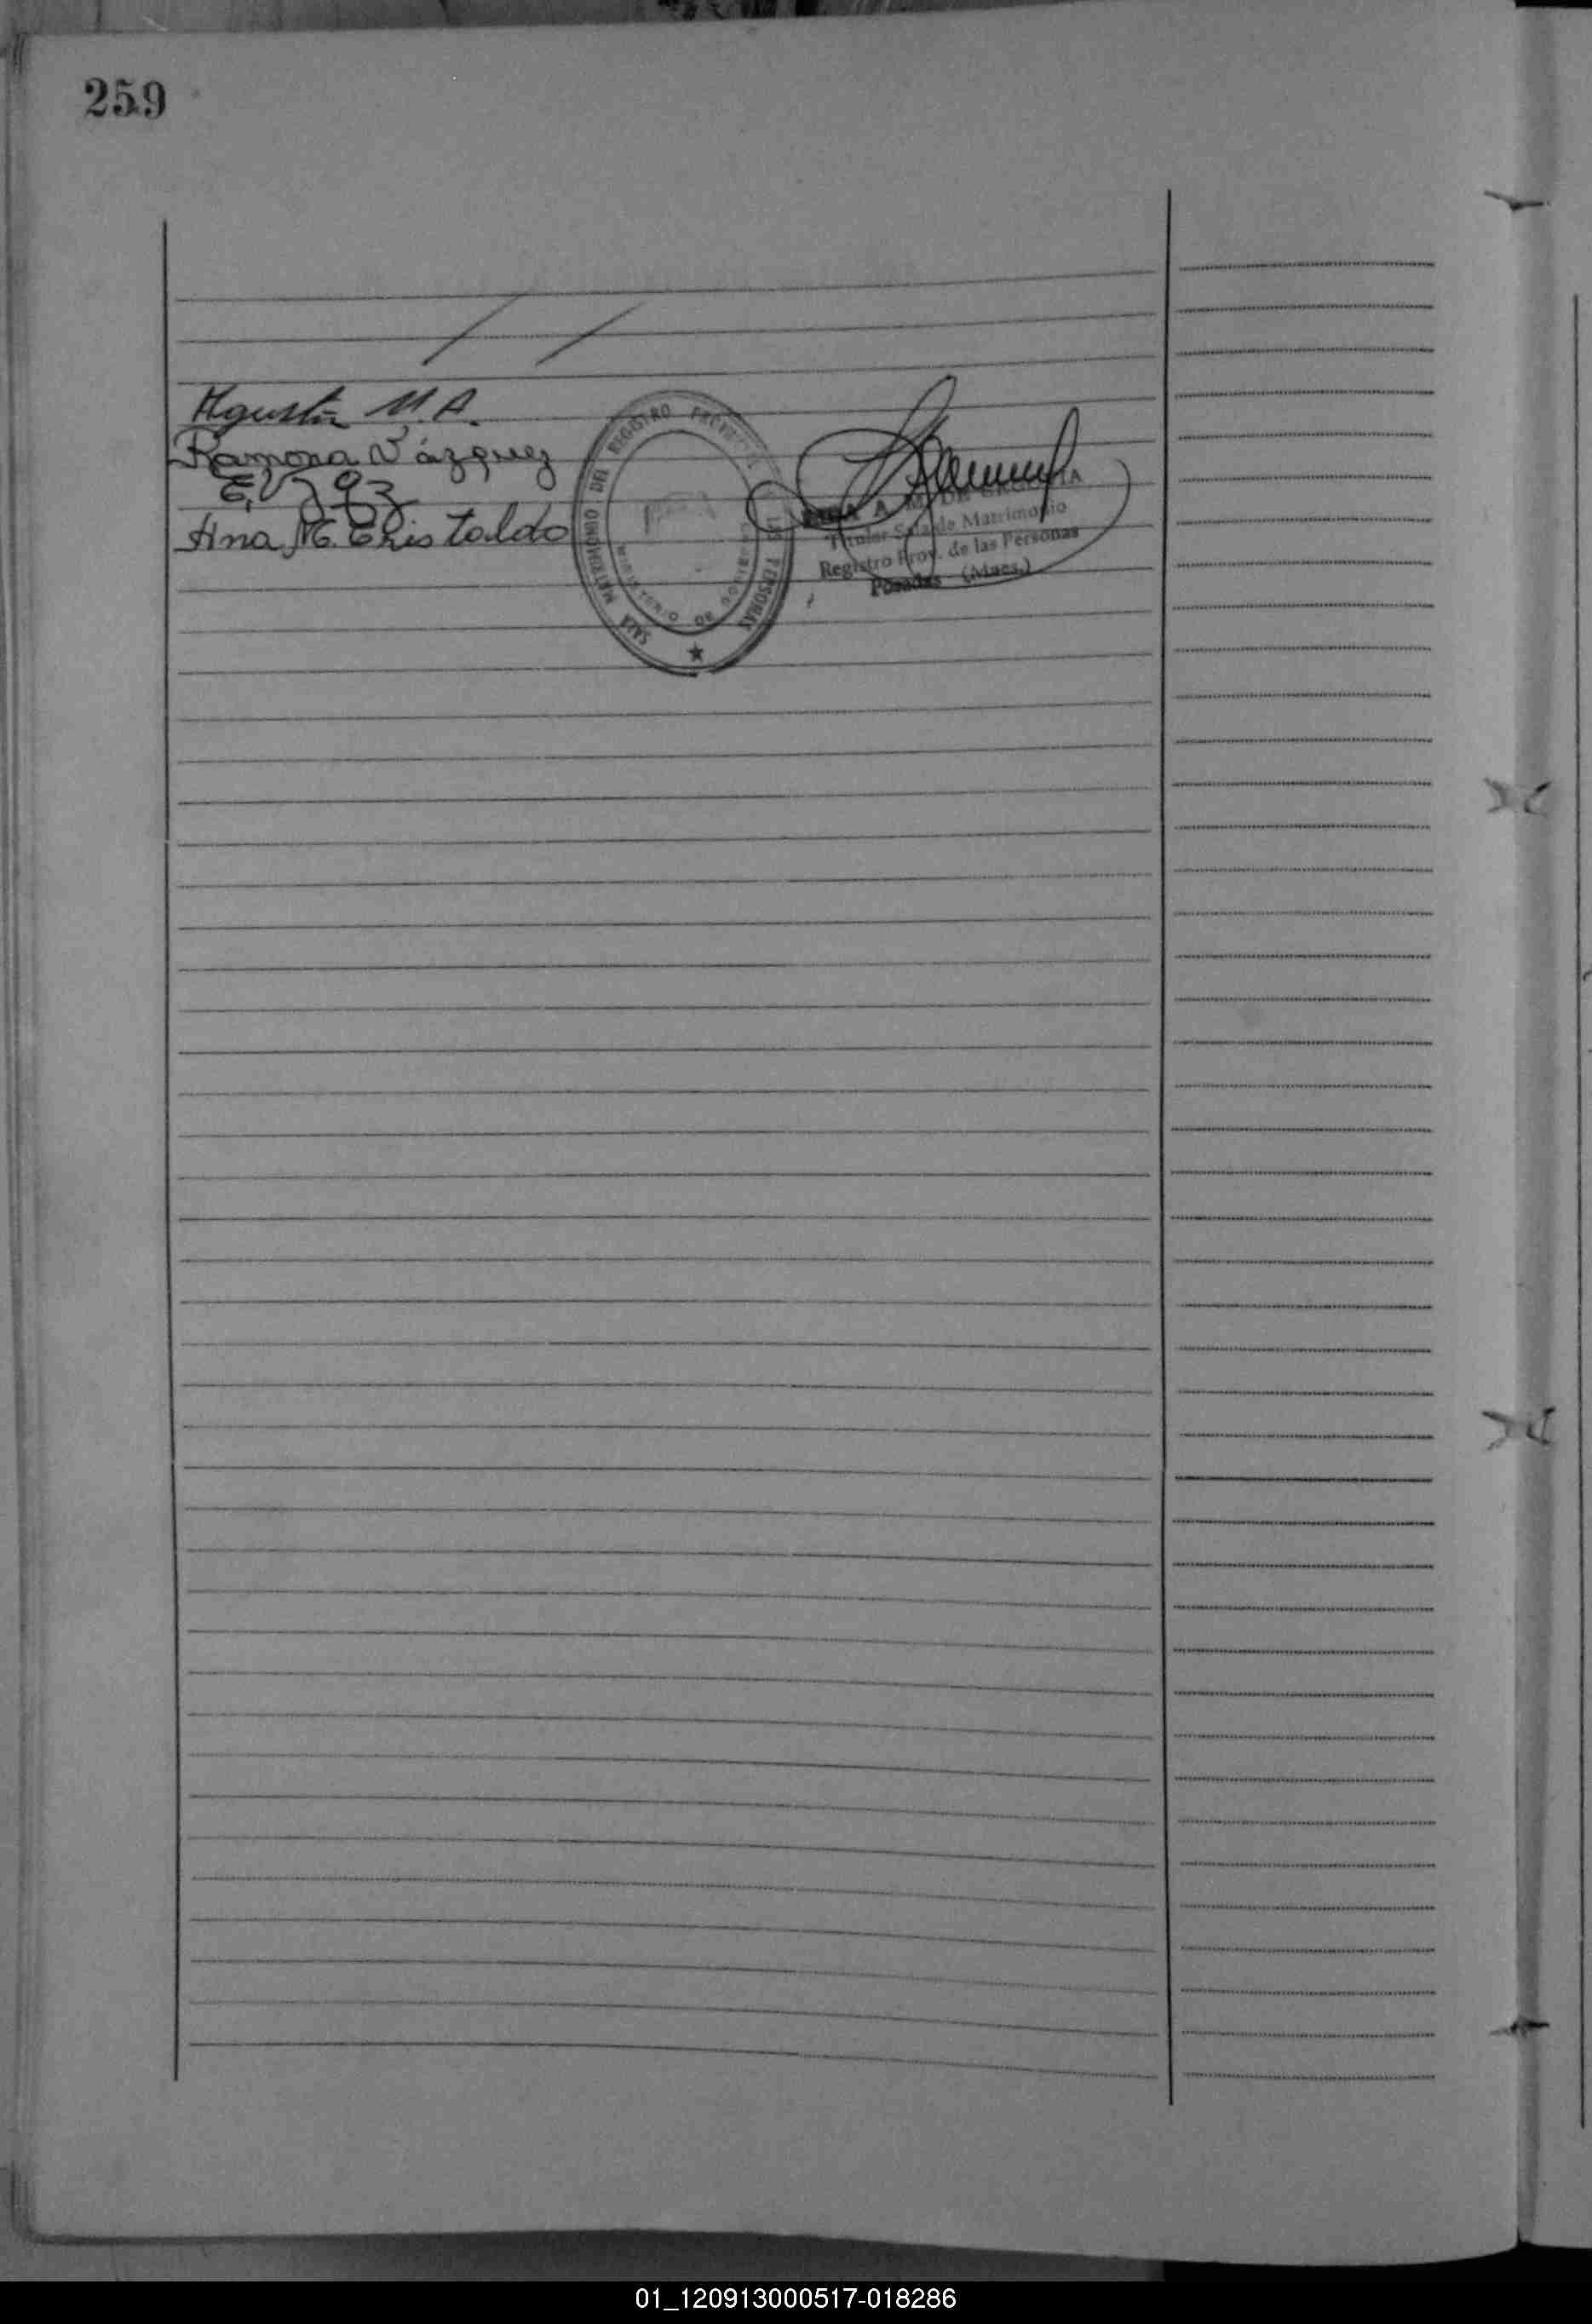 259
Agustín M.A.
Ramona Vázquez
E. Vzqz
Ana M. Christaldo
SALA MATRIMONIO DEL REGISTRO PROVINCIAL DE LAS PERSONAS
MINISTERIO DE GOBIERNO
A. M. DE
Titular Sala de Matrimonio
Registro Prov. de las Personas
Posadas (Mnes.)
01_120913000517-018286